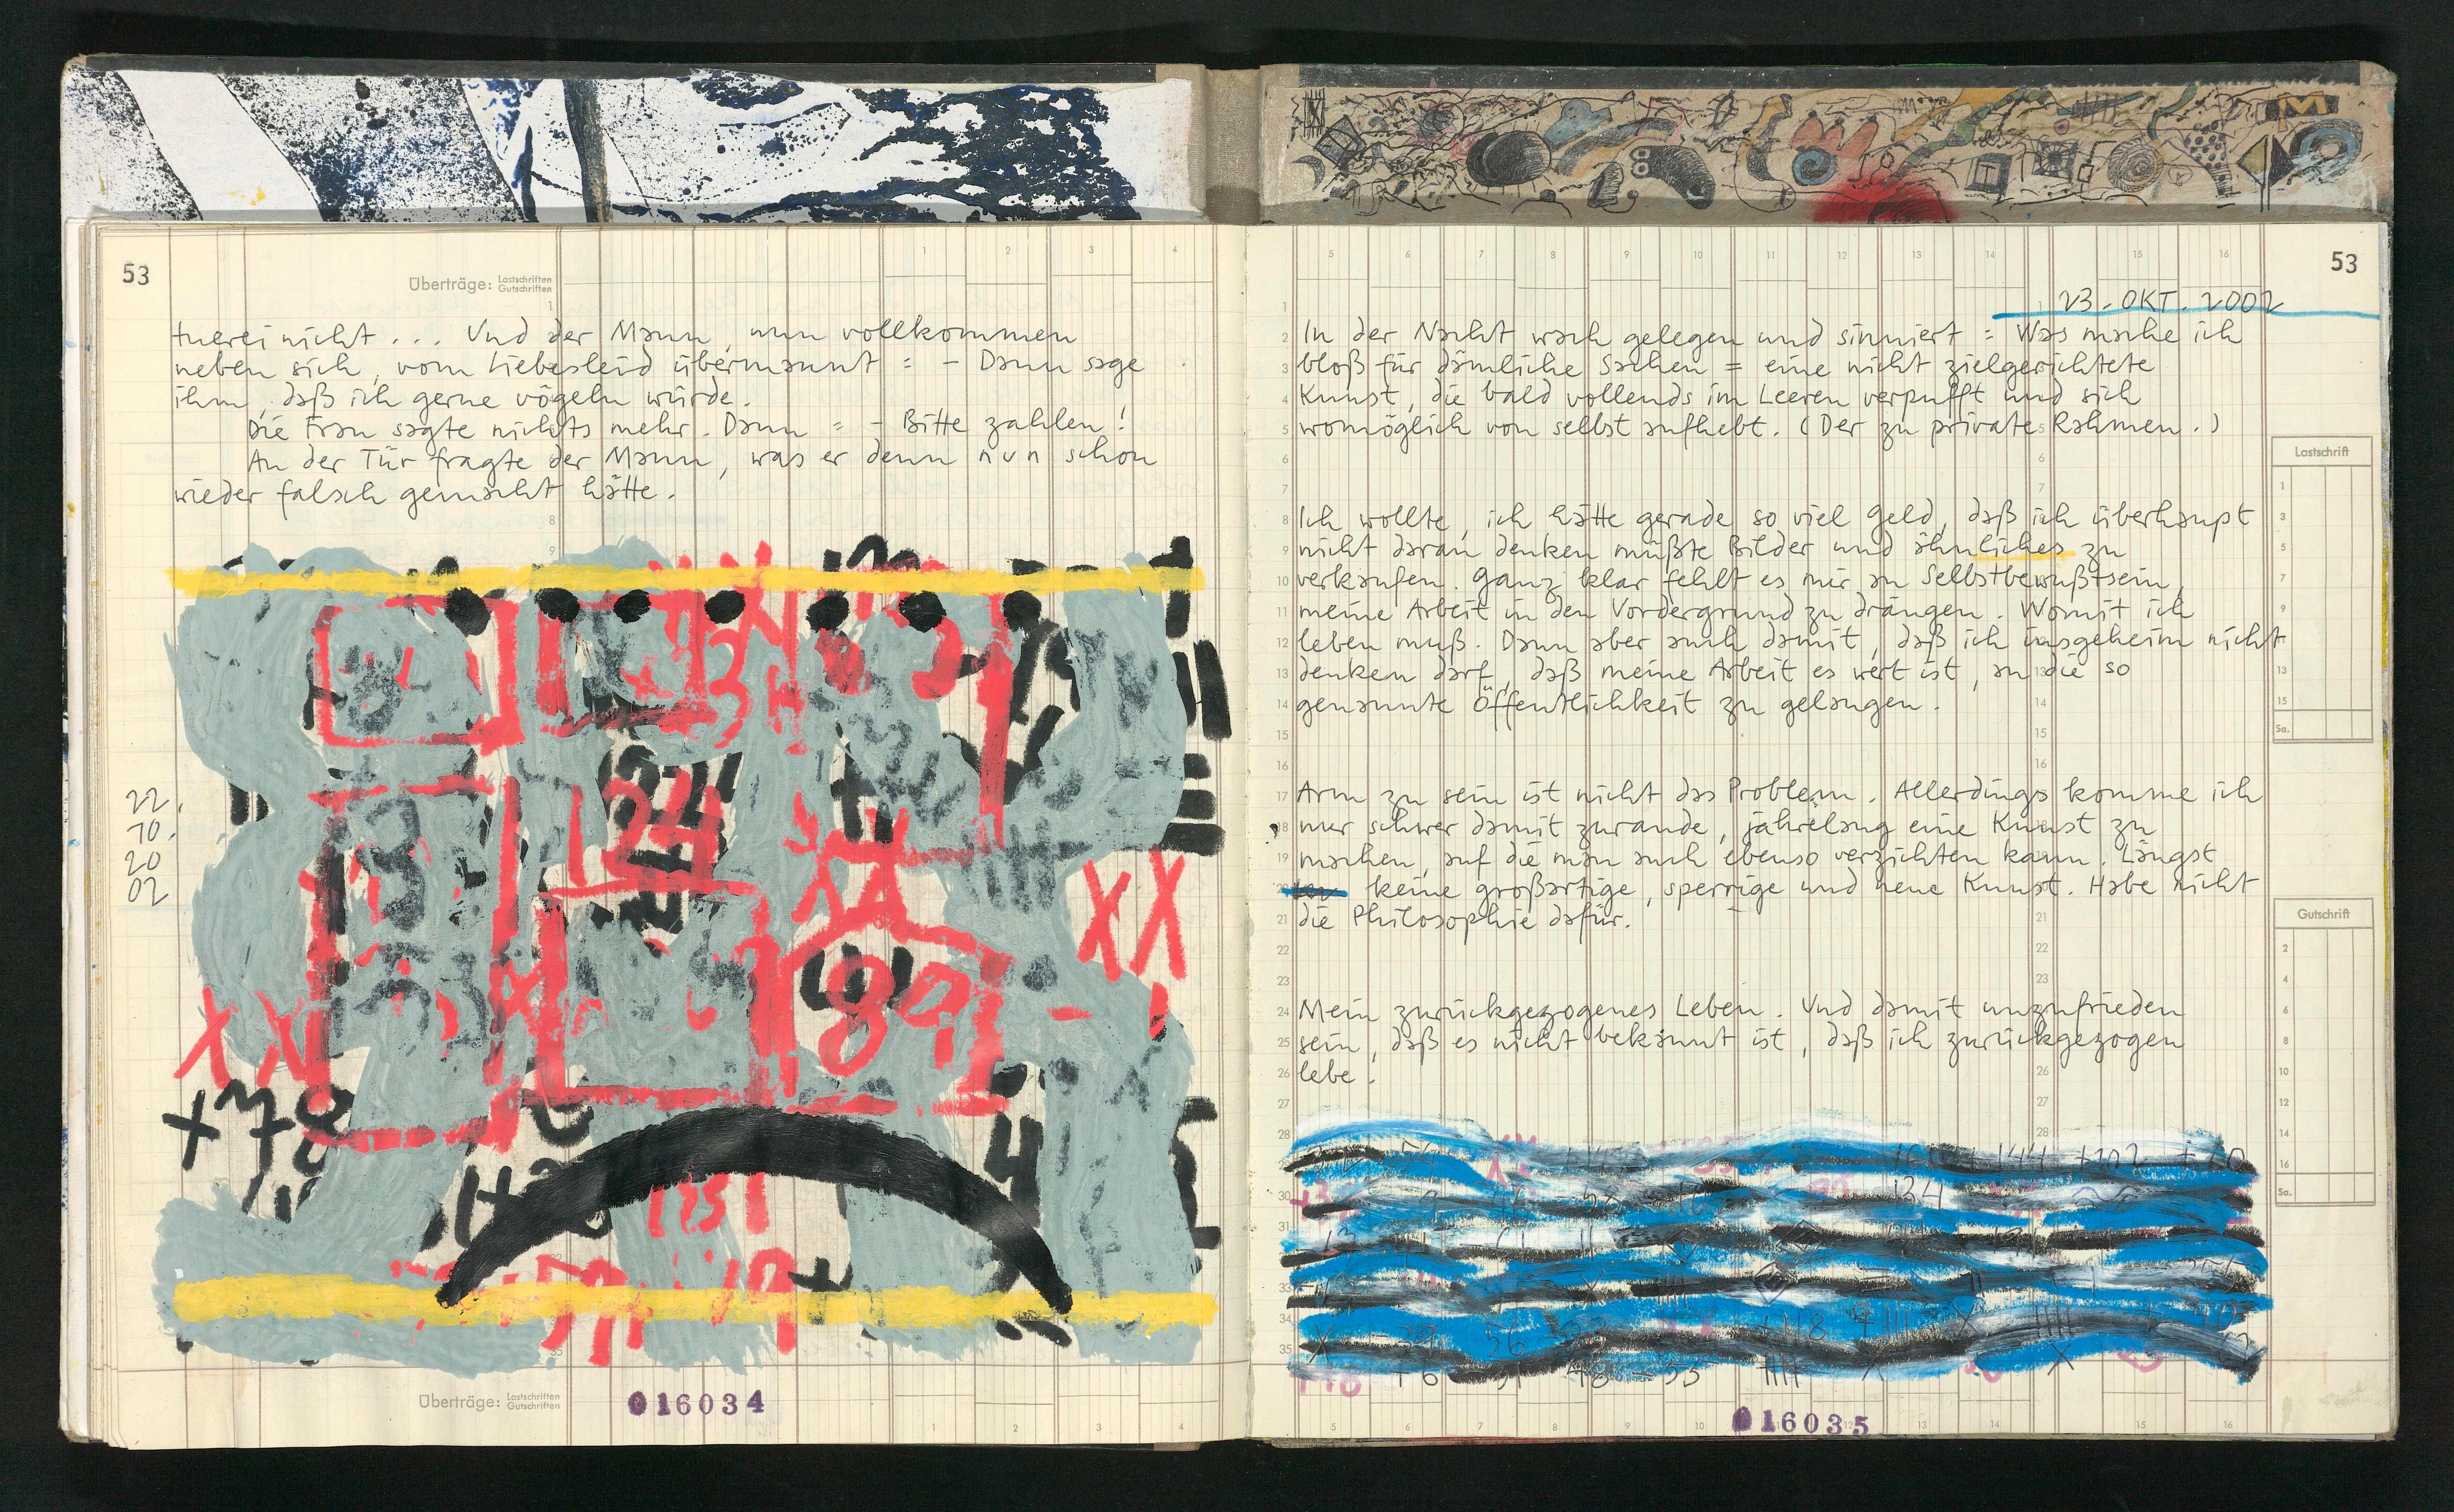 53
Überträge: Lastschriften
Gutschriften
1 2 3 4
tuerei nicht ... Und der Mann, nun vollkommen
neben sich, vom Liebesleid übermannt : – Dann sage
ihm, daß ich gerne vögeln würde.
Die Frau sagte nichts mehr. Dann : – Bitte zahlen!
An der Tür fragte der Mann, was er denn nun schon
wieder falsch gemacht hätte.
22.
10.
20
02
124
XX
89
XX
+78
151
Überträge: Lastschriften
Gutschriften
016034
1 2 3 4
5 6 7 8 9 10 11 12 13 14 15 16
53
23. OKT. 2002
In der Nacht wach gelegen und sinniert : Was mache ich
bloß für dämliche Sachen = eine nicht zielgerichtete
Kunst, die bald vollends im Leeren verpufft und sich
womöglich von selbst aufhebt. (Der zu private Rahmen.)
Ich wollte, ich hätte gerade so viel Geld, daß ich überhaupt
nicht daran denken müßte Bilder und ähnliches zu
verkaufen. Ganz klar fehlt es mir an Selbstbewußtsein,
meine Arbeit in den Vordergrund zu drängen. Womit ich
leben muß. Dann aber auch damit, daß ich insgeheim nicht
denken darf, daß meine Arbeit es wert ist, an die so
genannte Öffentlichkeit zu gelangen.
Arm zu sein ist nicht das Problem. Allerdings komme ich
nur schwer damit zurande, jahrelang eine Kunst zu
machen, auf die man auch ebenso verzichten kann. Längst
keine großartige, sperrige und neue Kunst. Habe nicht
die Philosophie dafür.
Mein zurückgezogenes Leben. Und damit unzufrieden
sein, daß es nicht bekannt ist, daß ich zurückgezogen
lebe.
Lastschrift
1
3
5
7
9
13
15
Sa.
Gutschrift
2
4
6
8
10
12
14
16
Sa.
144 +102
134
56
+118
+6 48 – 55
016035
5 6 7 8 9 10 12 13 14 15 16